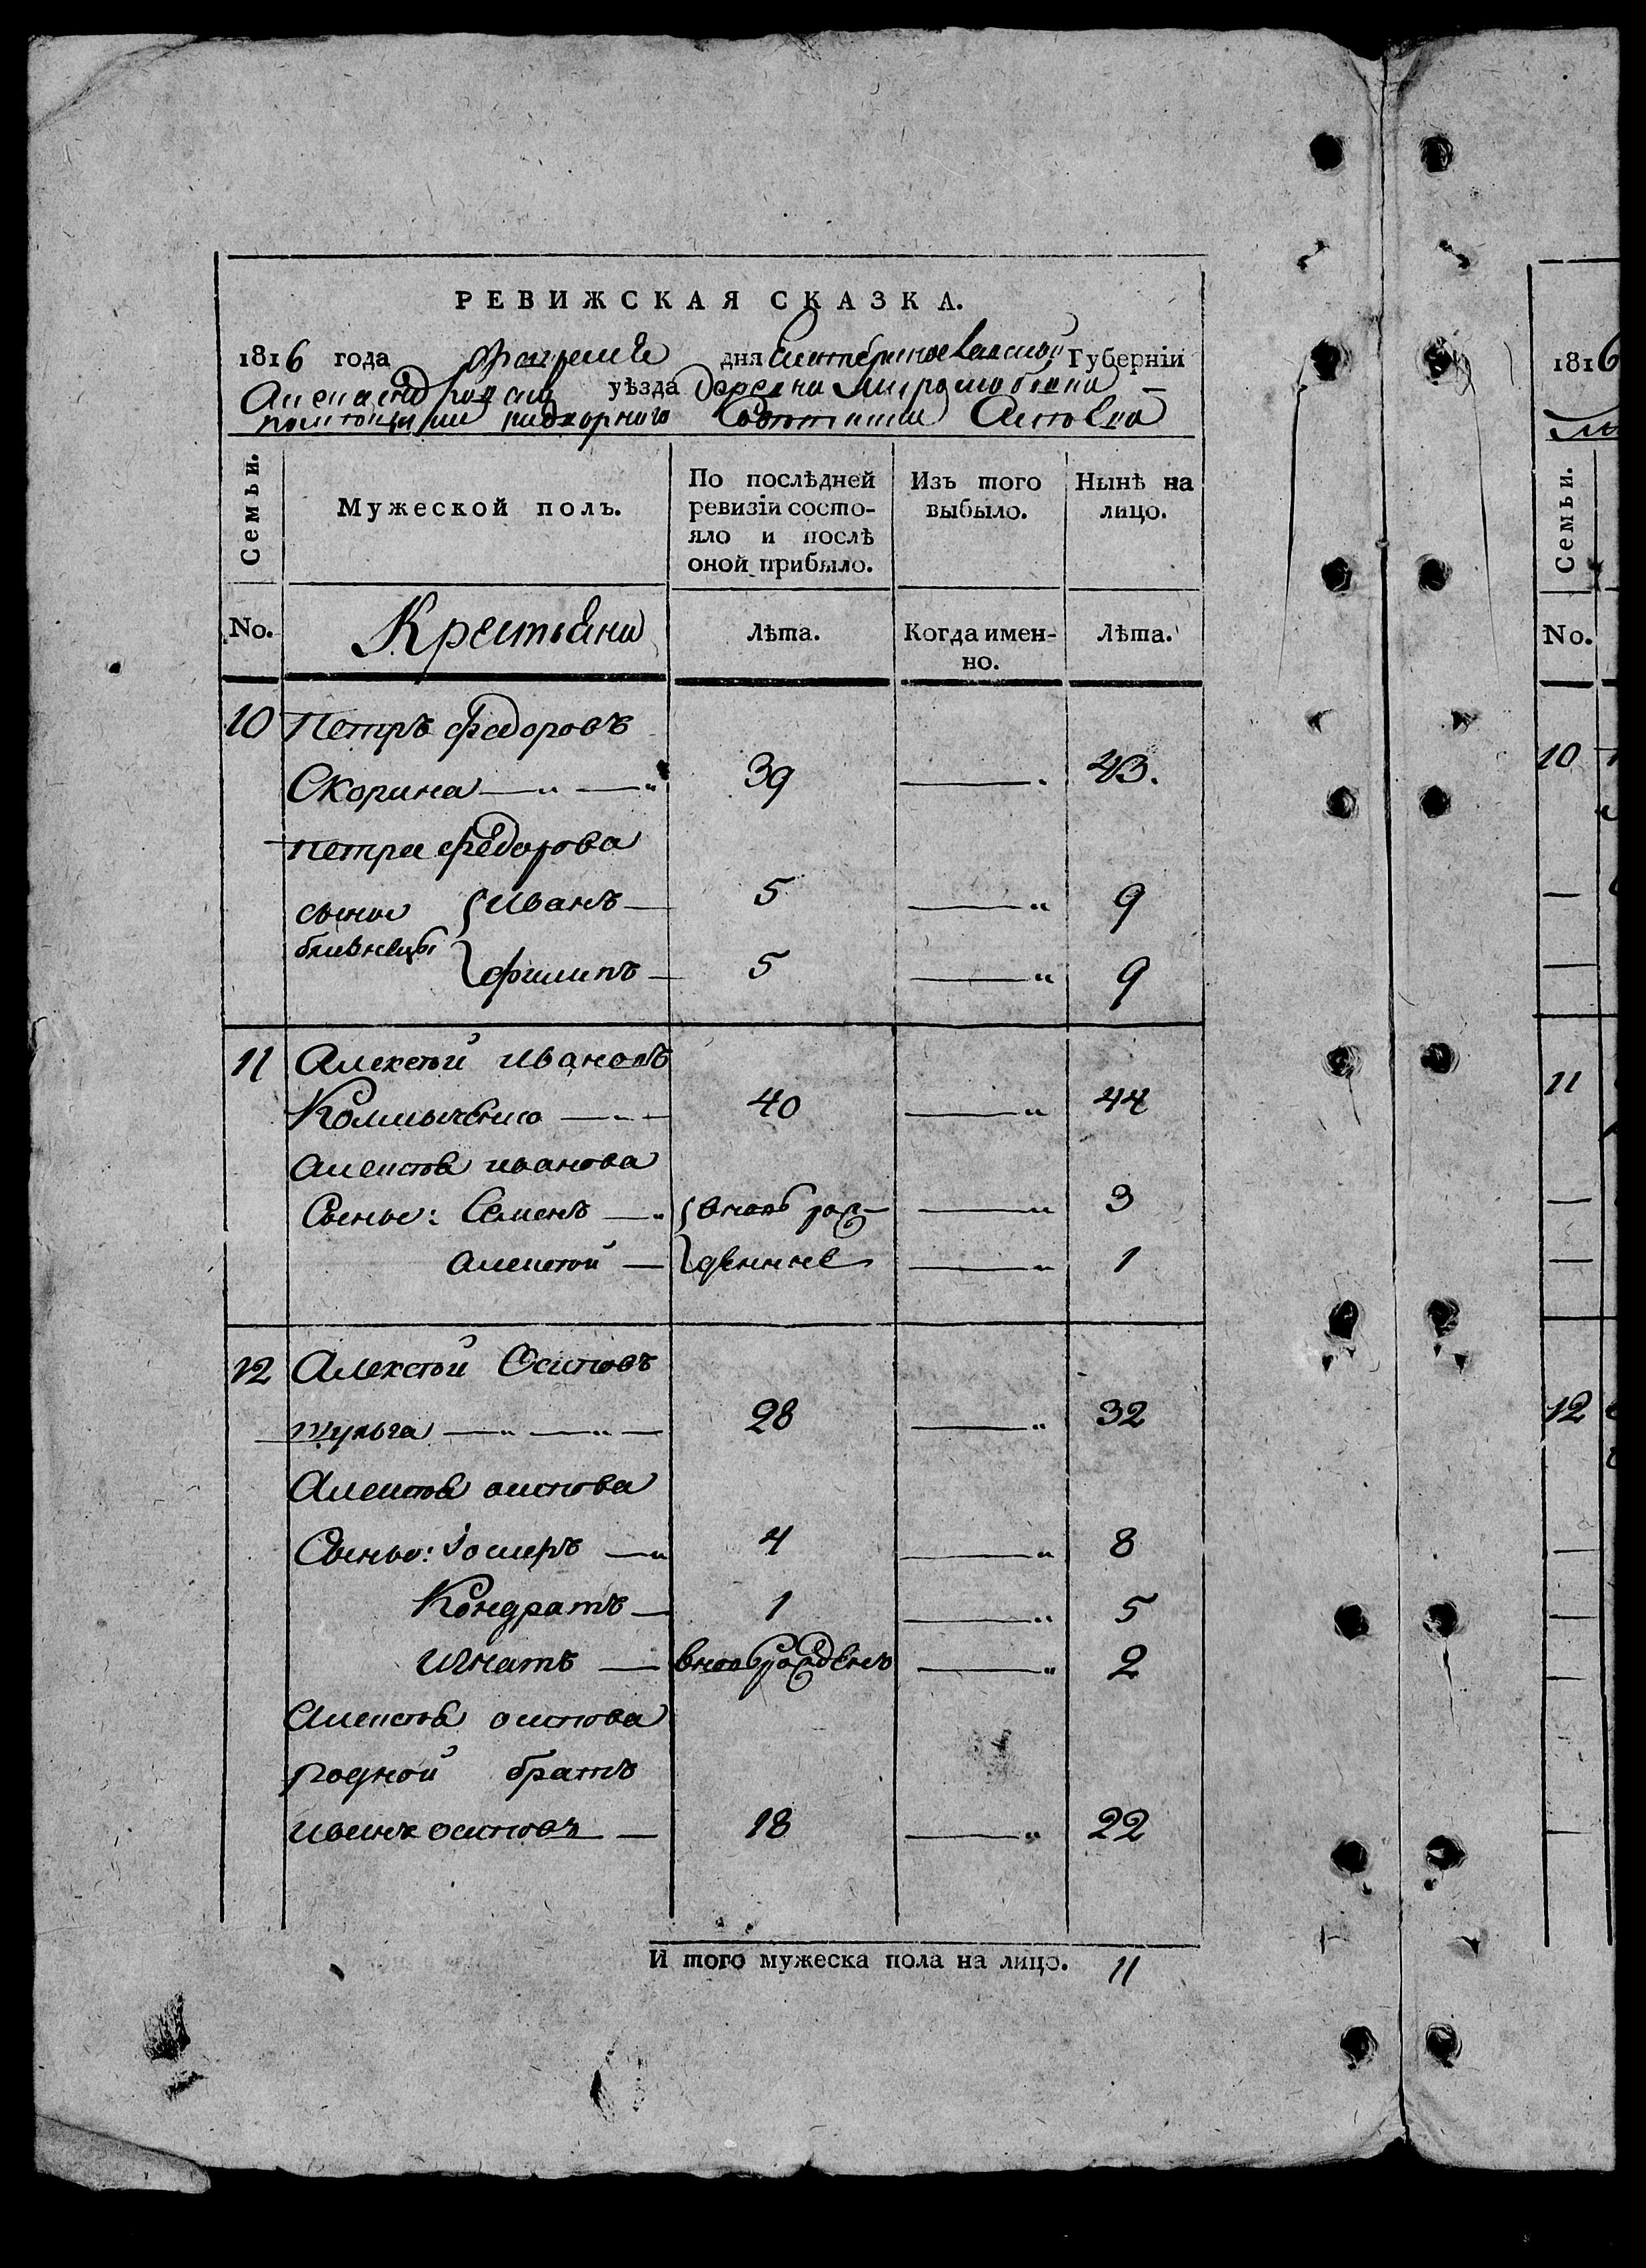 РЕВИЖСКАЯ СКАЗКА.
1816 года Апреля дня Екатеринославской Губерніи
Александровскаго уѣзда деревни Миролюбовки
надворного Советника
Семьи.
Мужеской полъ.
По послѣдней ревизіи состояло и послѣ оной прибыло.
Изъ того выбыло.
Нынѣ на лицо.
No.
Крестьяни
Лѣта.
Когда именно.
Лѣта.
10 Петръ Федоровъ
Скорина 39 43.
Петра Федорова
сыны Иванъ 5 9
близнецы
Филипъ 5 9
11 Алексѣй Ивановъ
40 44
Алексѣя Иванова
Сыны: Семенъ вновь рож- 3
Алексѣй денные 1
12 Алексѣй Осиповъ
Шульга 28 32
Алексѣя Осипова
Сыны: 4 8
Кондратъ 1 5
Игнатъ вновьрожденъ 2
Алексѣя Осипова
родной братъ
Осиповъ 18 22
И того мужеска пола на лицо. 11
1816
Семьи.
No.
10
11
12